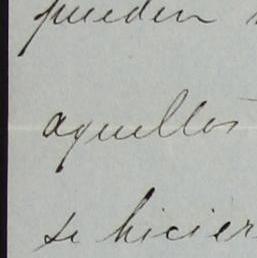 pueden
aquellos
se hicier